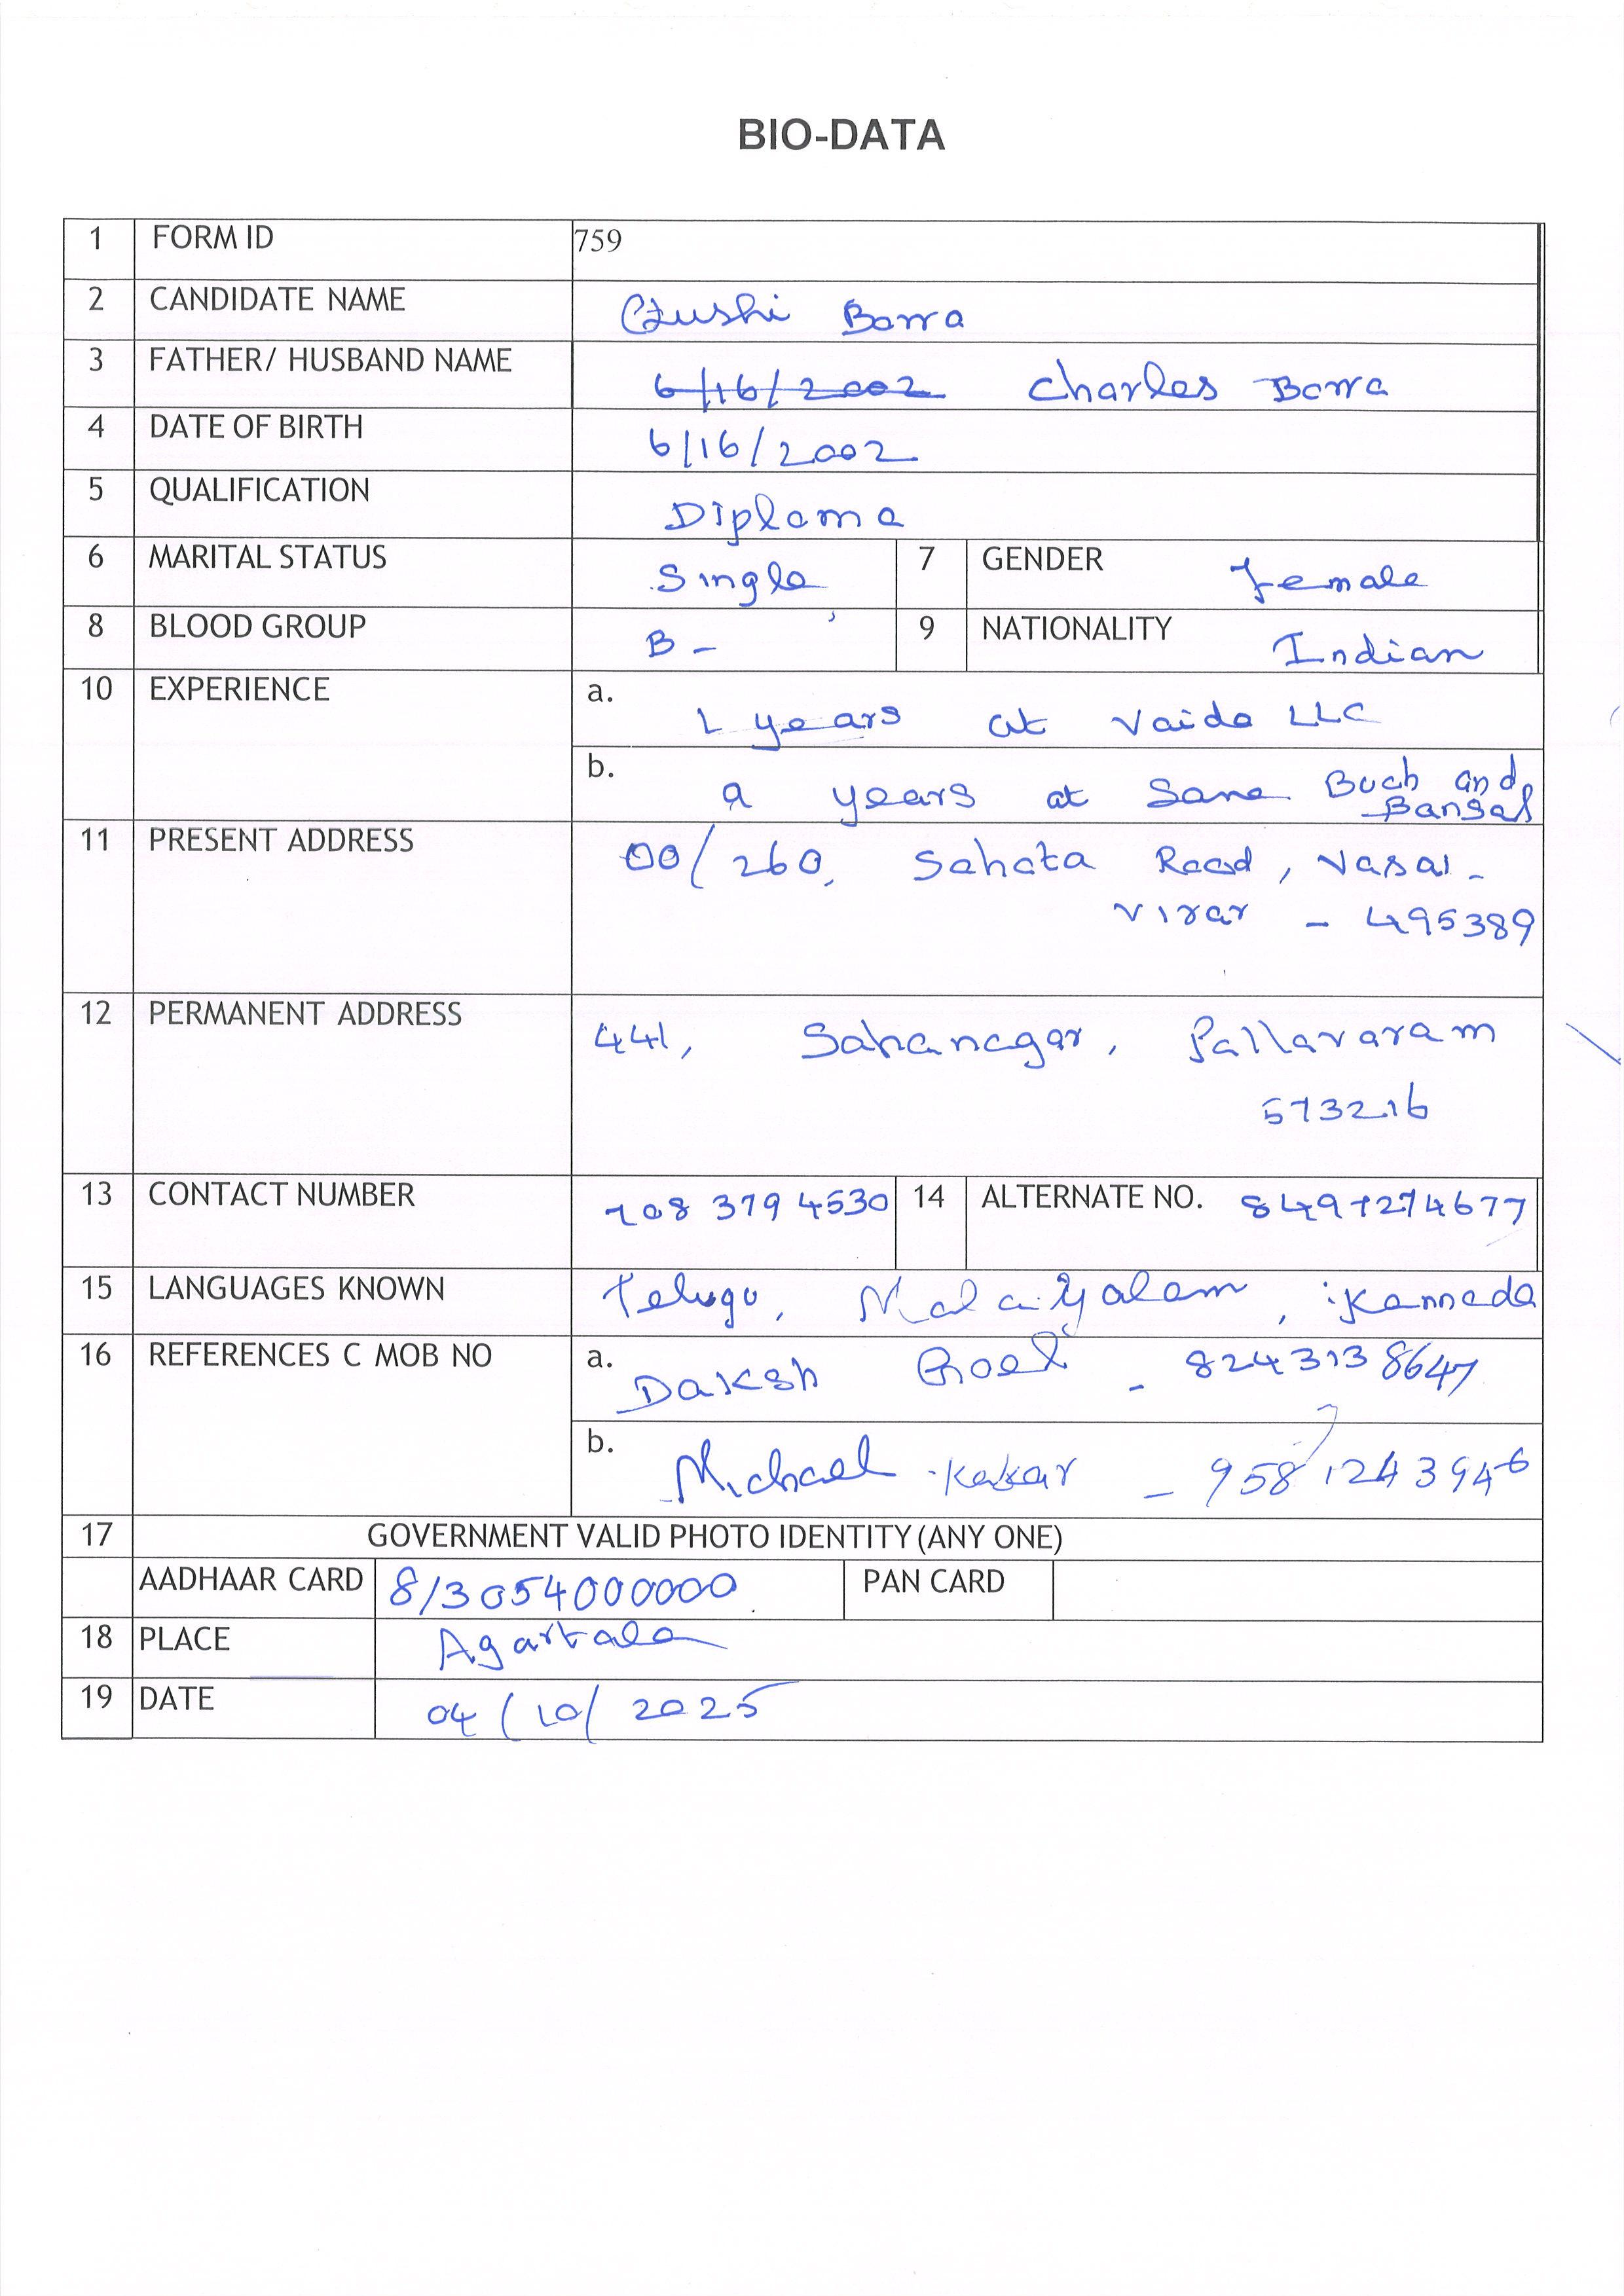 BIO-DATA
1 FORM ID 759
2 CANDIDATE NAME Borra
3 FATHER/ HUSBAND NAME 6/16/2002 Charles Borra
4 DATE OF BIRTH 6/16/2002
5 QUALIFICATION Diploma
6 MARITAL STATUS Single 7 GENDER Female
8 BLOOD GROUP B - 9 NATIONALITY Indian
10 EXPERIENCE a. years at LLC
b. 9 years at Sane Buch and
Bansal
11 PRESENT ADDRESS 00/260, Sahota Road, Vasai -
Virar - 495389
12 PERMANENT ADDRESS 441, Sahanagar, Pallavaram
573216
13 CONTACT NUMBER 14 ALTERNATE NO. 8497274677
15 LANGUAGES KNOWN Telugu, Malaiyalam, Kannada
16 REFERENCES C MOB NO a. Daksh Goel - 8243138647
b. Michael Kakar - 9581243946
17 GOVERNMENT VALID PHOTO IDENTITY (ANY ONE)
AADHAAR CARD 8/3054000000 PAN CARD
18 PLACE Agartala
19 DATE 04/10/2025